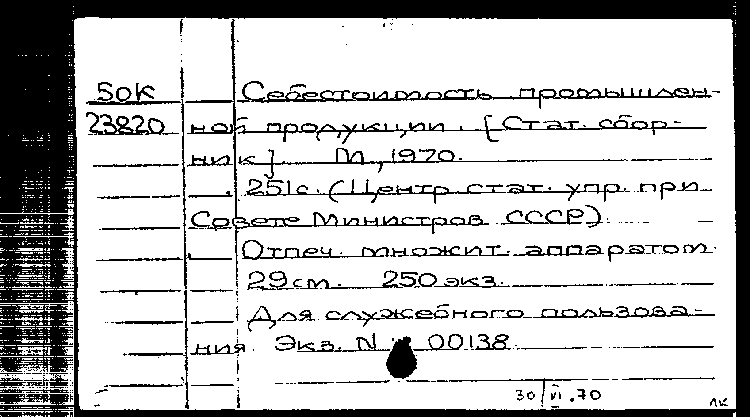 БОК Себестоимость промышлен-
23820 ной продукции. [Стат. сбор-
ник]. М., 1970.
251с. (Центр. стат. упр. при
Совете Министров СССР).
Отпеч. множит. аппаратом.
29см. 250 экз.
Для служебного пользова-
ния. Экз. N 00138
30/VI.70
ЛК